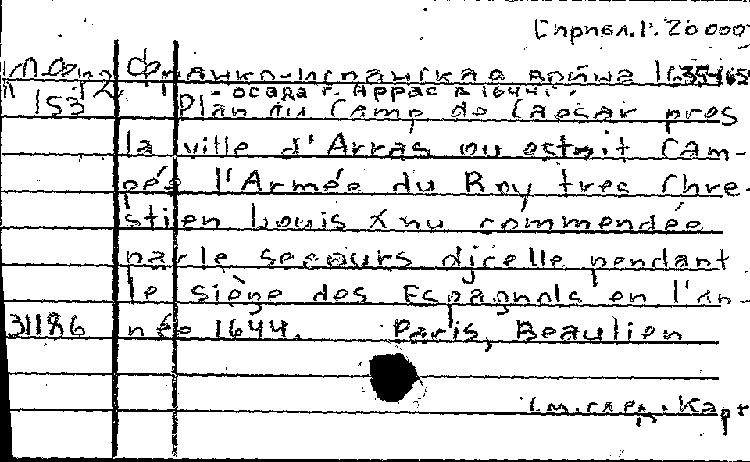 Франко-испанская война 1635-165
- осада г. Аррас в 1644г.
153 Plan du Camp de Caesar pres
la ville d'Arras ou estoit Cam-
pée l'Armée du Roy tres Chre-
stien Louis X nu commendée
par le secours dicelle pendant
le siège des Espagnols en l'an-
31186 née 1644. Paris, Beaulieu
См. след. карт